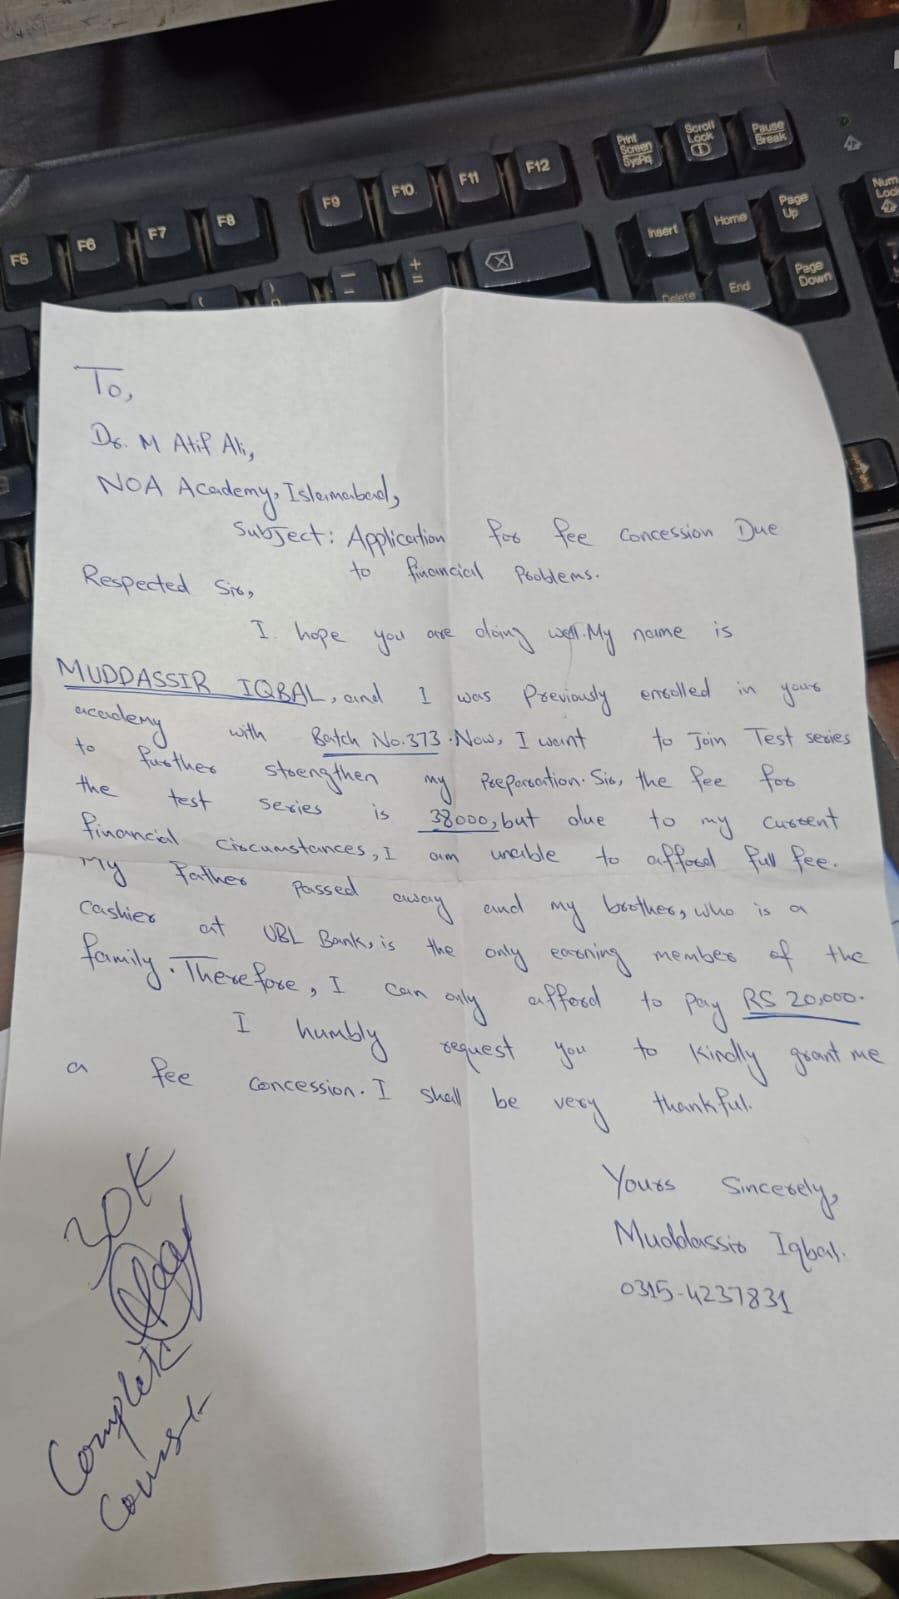 F5 F6 F7 F8 F9 F10 F11 F12
Print Screen SysRq
Scroll Lock
Pause Break
Insert Home Page Up
Num Lock
Delete End Page Down
To,
Dr. M Atif Ali,
NOA Academy, Islamabad,
Subject: Application for fee concession Due
to financial Problems.
Respected Sir,
I hope you are doing well. My name is
MUDDASSIR IQBAL, and I was previously enrolled in your
academy with Batch No. 373. Now, I want to Join Test series
to further strengthen my Preparation. Sir, the fee for
the test series is 38000, but due to my current
financial circumstances, I am unable to afford full fee.
My father passed away and my brother, who is a
cashier at UBL Bank, is the only earning member of the
family. Therefore, I can only afford to pay RS 20,000.
I humbly request you to kindly grant me
a fee concession. I shall be very thankful.
Yours Sincerely,
Muddassir Iqbal.
0315-4237831
30K
Complete
Course